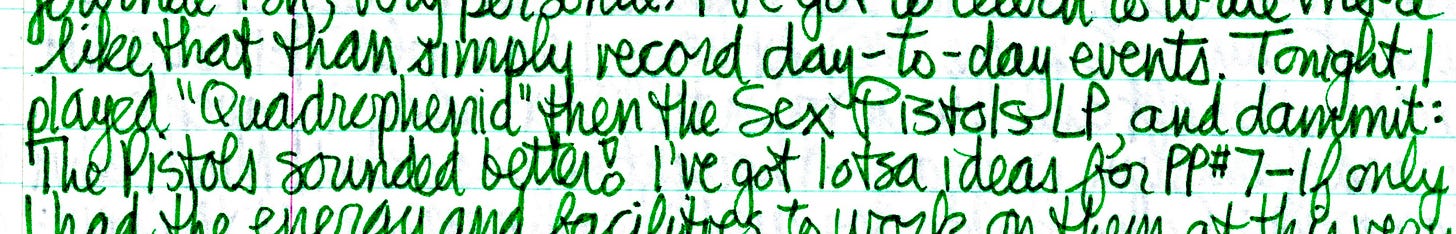 journal is a very personal. I've got to learn to write more
like that than simply record day-to-day events. Tonight I
played "Quadrophenia" then the Sex Pistols LP, and dammit:
The Pistols sounded better! I've got lotsa ideas for PP#7-If only
I had the energy and facilities to work on them at this very